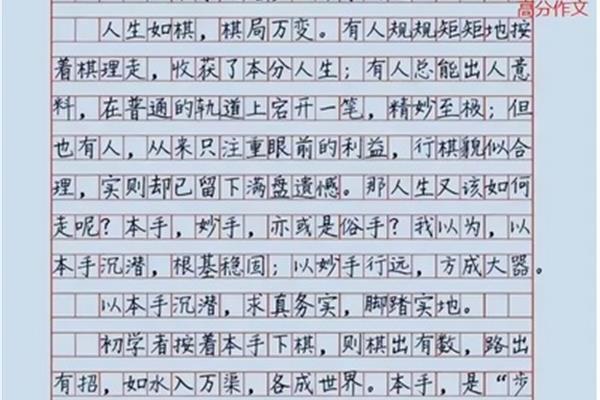 高分作文
人生如棋，棋局万变。有人规规矩矩地按
着棋理走，收获了本分人生；有人总能出人意
料，在普通的轨道上宕开一笔，精妙至极；但
也有人，从来只注重眼前的利益，行棋貌似合
理，实则却已留下满盘遗憾。那人生又该如何
走呢？本手，妙手，亦或是俗手？我以为，以
本手沉潜，根基稳固；以妙手行远，方成大器。
以本手沉潜，求真务实，脚踏实地。
初学者按着本手下棋，则棋出有数，路出
有招，如水入万渠，各成世界。本手，是“步